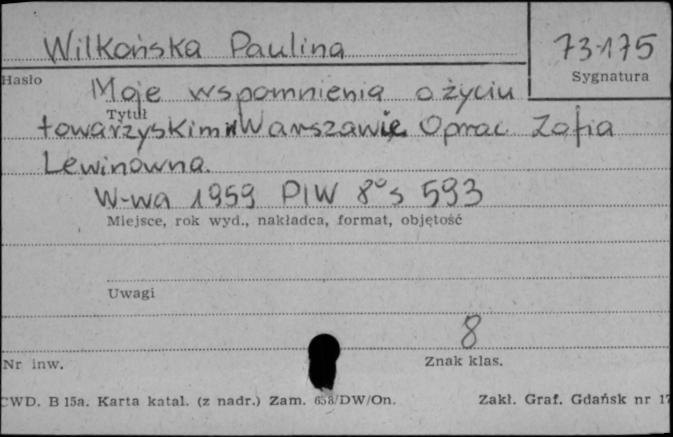 Wilkońska Paulina
73-175
Hasło
Sygnatura
Moje wspomnienia o życiu
Tytuł
towarzyskim w Warszawie Oprac Zofia
Lewinówna.
W-wa 1959 PIW 8° s 593
Miejsce, rok wyd., nakładca, format, objętość
Uwagi
8
Nr inw.
Znak klas.
CWD. B 15a. Karta katal. (z nadr.) Zam. 658/DW/On.
Zakł. Graf. Gdańsk nr 17